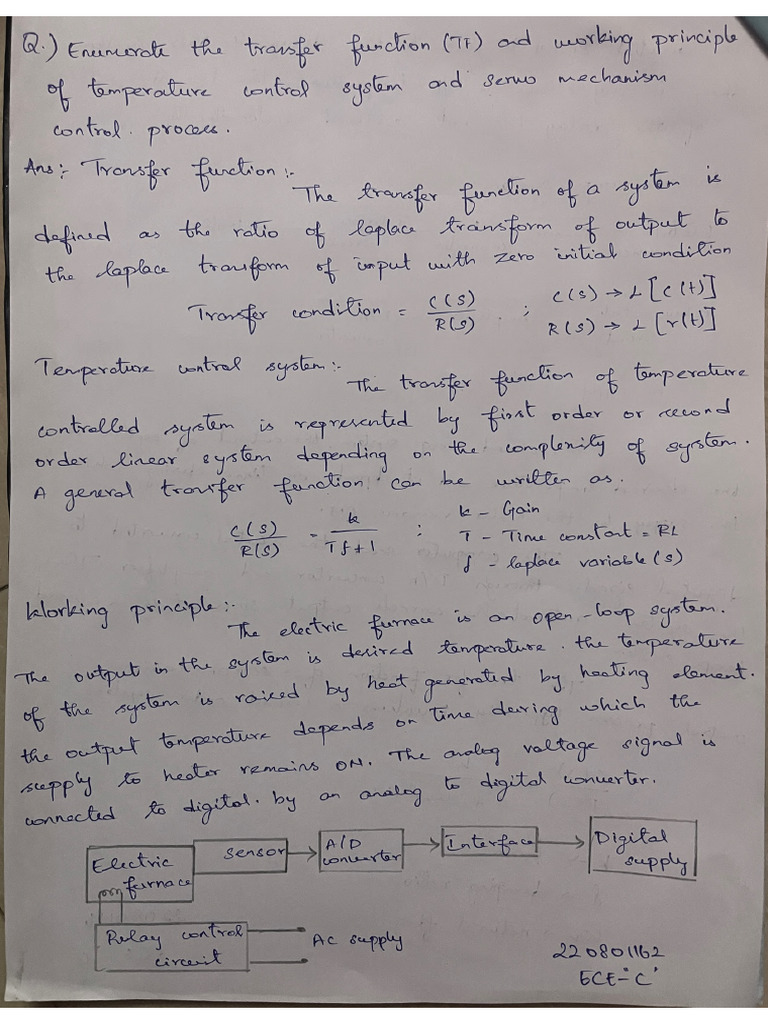 Q.) Enumerate the transfer function (TF) and working principle
of temperature control system and servo mechanism
control process.
Ans :- Transfer function :-
The transfer function of a system is
defined as the ratio of laplace transform of output to
the laplace transform of input with zero initial condition
Transfer condition = C(S)/R(S) ; C(s) → L [c(t)]
R(s) → L [r(t)]
Temperature control system :-
The transfer function of temperature
controlled system is represented by first order or second
order linear system depending on the complexity of system.
A general transfer function can be written as.
C(S)/R(S) = k/Tf+1 ; k - Gain
T - Time constant = RL
f - laplace variable (s)
Working principle :-
The electric furnace is an open-loop system.
The output in the system is desired temperature. the temperature
of the system is raised by heat generated by heating element.
the output temperature depends on time during which the
supply to heater remains ON. The analog voltage signal is
connected to digital. by an analog to digital converter.
Electric furnace
sensor
A/D converter
Interface
Digital supply
Relay control circuit
AC supply
220801162
ECE-"C"